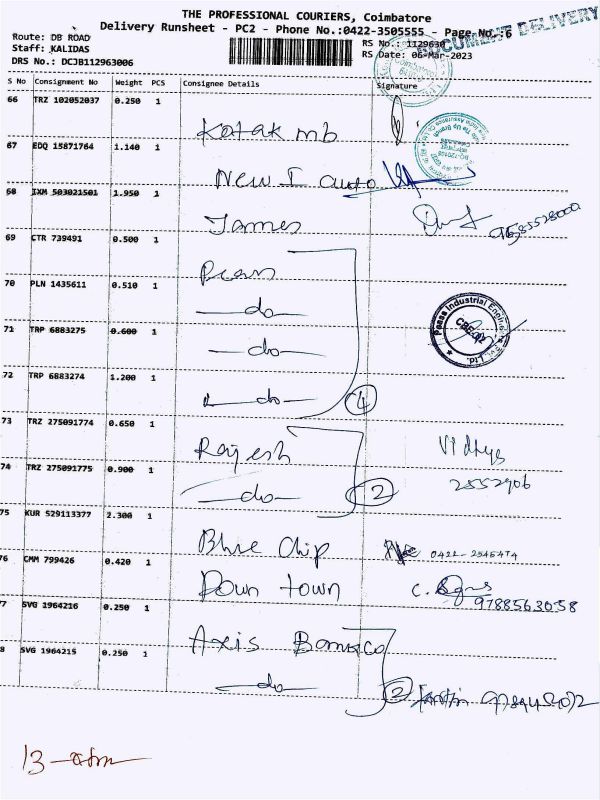 THE PROFESSIONAL COURIERS, Coimbatore
Delivery Runsheet - PC2 - Phone No.:0422-3505555 - Page No.:6
DOCUMENT DELIVERY
Route: DB ROAD
Staff: KALIDAS
DRS No.: DCJB112963006
RS No.: 1129630
RS Date: 06-Mar-2023
S No Consignment No Weight PCS Consignee Details Signature
66 TRZ 102052037 0.250 1
Kotak mb
67 EDQ 15871764 1.140 1
New I auto
68 IXM 503021501 1.950 1
James
69 CTR 739491 0.500 1
70 PLN 1435611 0.510 1
do
71 TRP 6883275 0.600 1
do
Paass Industrial
72 TRP 6883274 1.200 1
do 4
73 TRZ 275091774 0.650 1
Rajesh Vidhya
74 TRZ 275091775 0.900 1
do 2 2552906
75 KUR 529113377 2.300 1
Blue Chip 0422-2545474
76 CMM 799426 0.420 1
Down town C.
9788563058
77 SVG 1964216 0.250 1
Axis
78 SVG 1964215 0.250 1
do 2
13